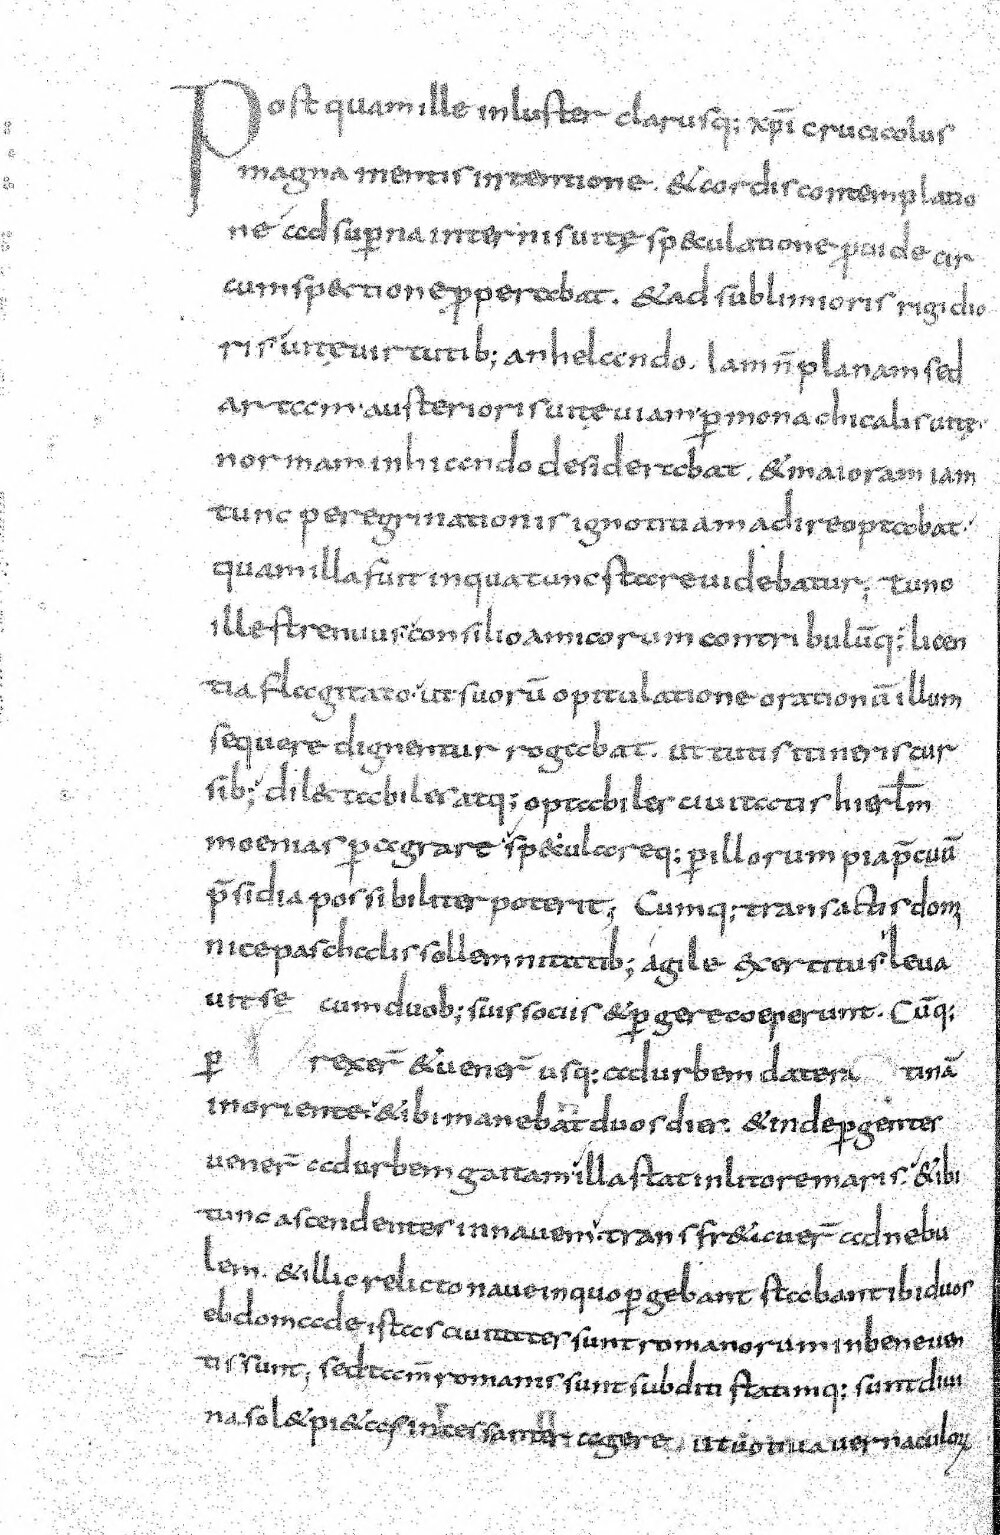 Post quam ille inluster clarusq; xp̄i crucicolus
magna mentis intentione. & cordis contemplatio
ne ad sup̱na internis uitę sp&culatione ꝓuide cir
cumsp&ctione ꝓperabat. & ad sublimioris rigidio
ris uitę uirtutib; anhelando. lam n̄ planam sed
artam austerioris uitę uiam ꝑ monachicalis uitę
normam inhiando desiderabat. & maioram iam
tunc peregrinationis ignotitiam adire optabat.
quam illa fuit in qua tunc stare uidebatur; tunc
ille strenuus consilio amicorum contribulūq; licen
tia flagitato. ut suorū opitulatione orationū illum
sequere dignentur rogabat. ut tutis itineris cur
sib; dil&tabiles atq; optabiles ciuitatis hierł̄m
moenias ꝑagrare sp&culareq; ꝑ illorum pia p̄cuū
p̄sidia possibiliter poterit; Cumq; transactis dom
nice paschalis sollemnitatib; agile exercitus leua
uit se cum duob; suis sociis & ꝑgere coeperunt. Cūq;
ꝑ rexer̄ & uener̄ usq; ad urbem datera tinā
in oriente. & ibi manebat duos dies. & inde ꝑgentes
uener̄ ad urbem gaitam illa stat in litore maris. & ibi
tunc ascendentes in nauem. transfr&auer̄ ad nebu
lem. & illic relicto naue in quo ꝑgebant stabant ibi duos
ebdomade istas ciuitates sunt romanorum in beneuen
tis sunt; sed tam̄ romanis sunt subditi statimq; sunt diui
na sol& pi&as incessanter agere ut uotiua uernaculoꝝ